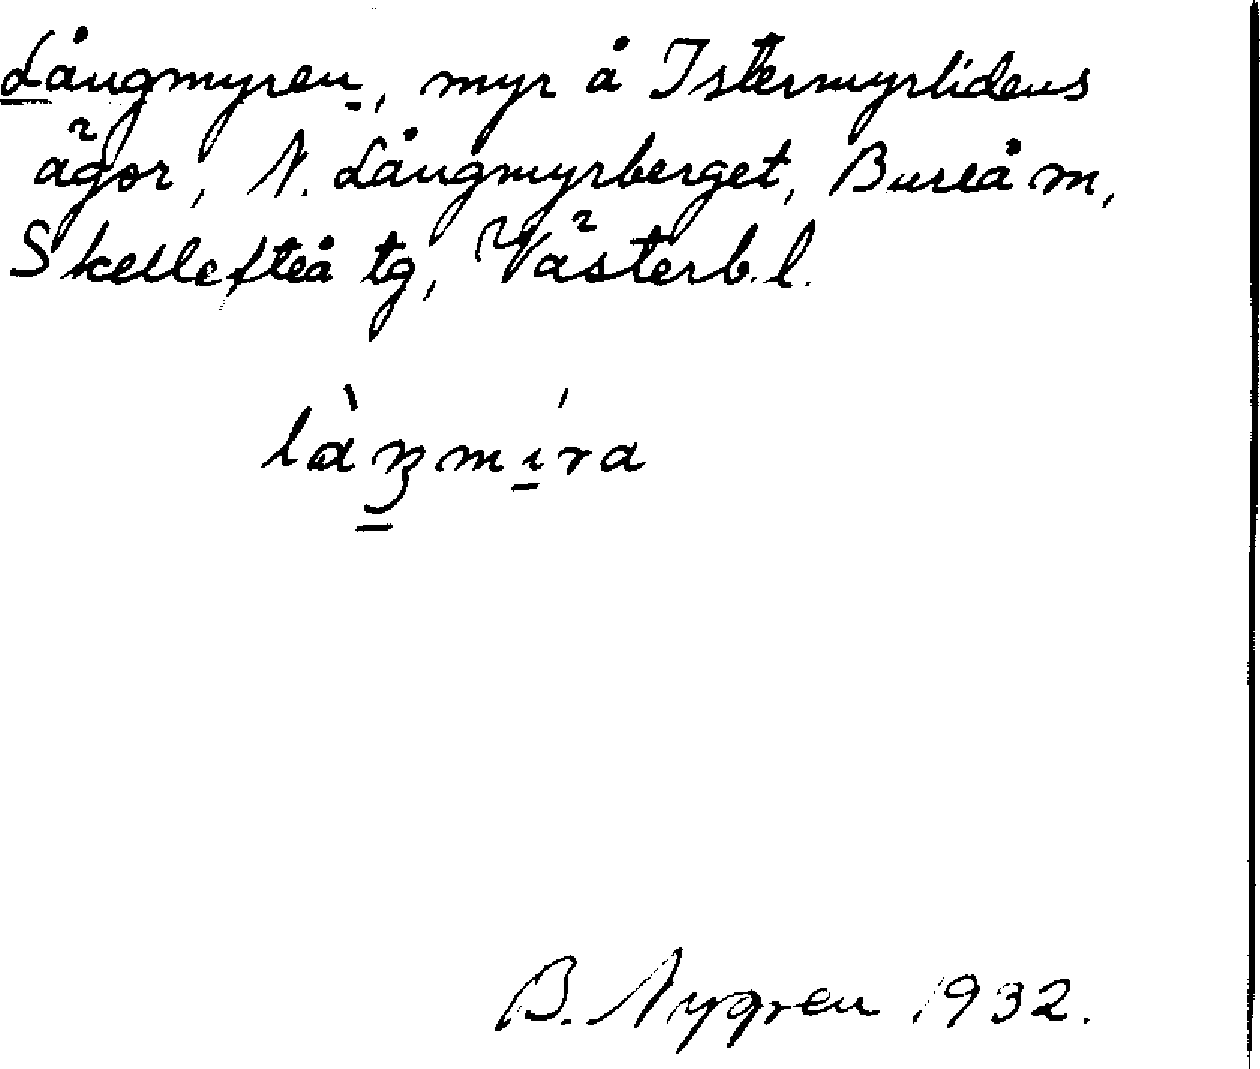 Långmyren, myr å Istermyrlidens
ägor, N. Långmyrberget, Bureå m,
Skellefteå tg, Västerb. l.
B. Nygren 1932.